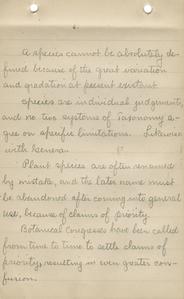 A species cannot be absolutely de-
fined because of the great variation
and gradation at present existant
Species are individual judgements,
and no two systems of Taxonomy a-
gree on specific limitations. Likewise
with Genera.
Plant species are often renamed
by mistake, and the later name must
be abandoned after coming into general
use, because of claims of priority.
Botanical Congresses have been called
from time to time to settle claims of
priority, resulting in even greater con-
fusion.